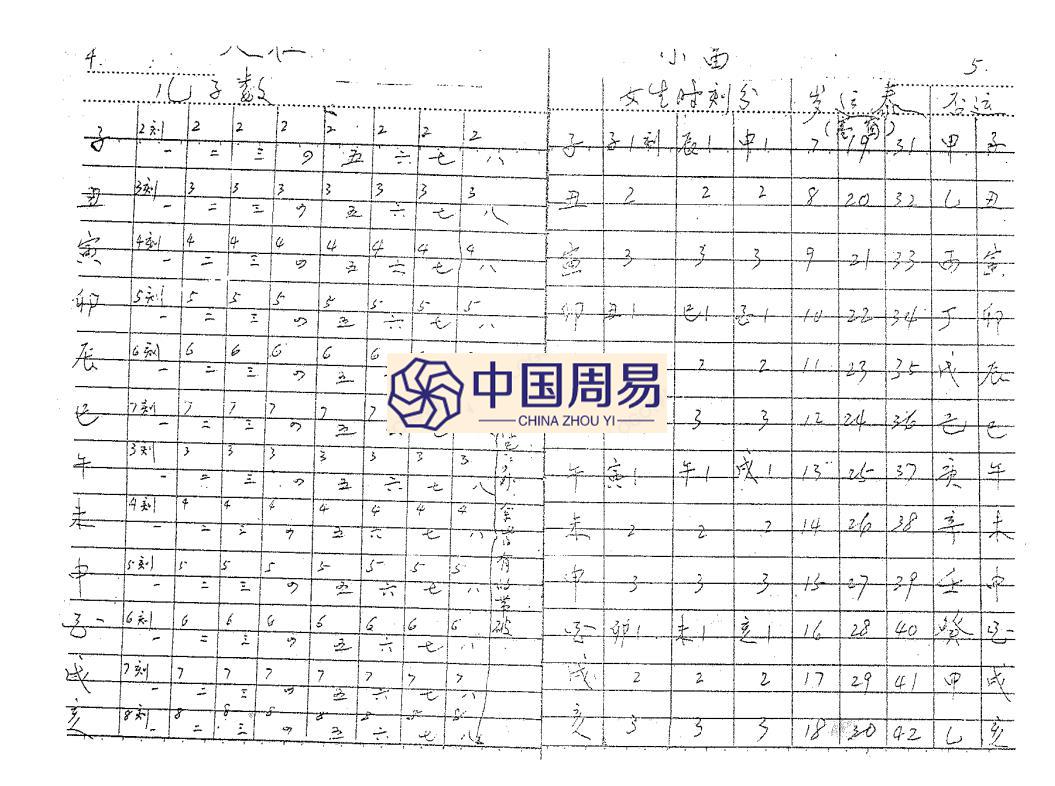 4.
儿子数
子 2刻 2 2 2 2 2 2 2
一 二 三 四 五 六 七 八
丑 3刻 3 3 3 3 3 3 3
一 二 三 四 五 六 七 八
寅 4刻 4 4 4 4 4 4 4
一 二 三 四 五 六 七 八
卯 5刻 5 5 5 5 5 5 5
一 二 三 四 五 六 七 八
辰 6刻 6 6 6 6 6
一 二 三 四 五
巳 7刻 7 7 7 7 7
一 二 三 四 五
午 3刻 3 3 3 3 3 3 3
一 二 三 四 五 六 七 八
未 4刻 4 4 4 4 4 4 4
一 二 三 四 五 六 七 八
申 5刻 5 5 5 5 5 5 5
一 二 三 四 五 六 七 八
6刻 6 6 6 6 6 6 6
一 二 三 四 五 六 七 八
戌 7刻 7 7 7 7 7 7 7
一 二 三 四 五 六 七 八
亥 8刻 8 8 8 8 8 5 8
一 二 三 四 五 六 七 八
小西 5.
女生时刻分 岁运泰 否运
子 子1刻 辰1 申1 7 19 31 甲 子
丑 2 2 2 8 20 32 乙 丑
寅 3 3 3 9 21 33 丙 寅
卯 丑1 巳1 10 22 34 丁 卯
2 2 11 23 35 戊 辰
3 3 12 24 36 己 巳
午 寅1 午1 戌1 13 25 37 庚 午
未 2 2 2 14 26 38 辛 未
申 3 3 3 15 27 39 壬 申
卯1 未1 亥1 16 28 40 癸
戌 2 2 2 17 29 41 甲 戌
亥 3 3 3 18 30 42 乙 亥
中国周易
CHINA ZHOU YI